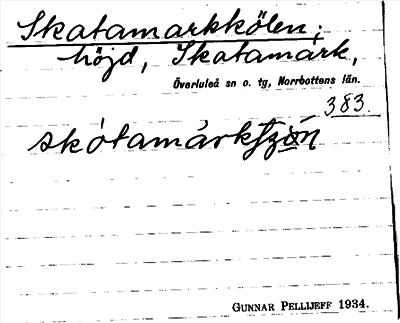 Skatamarkkölen;
höjd, Skatamark,
Överluleå sn o. tg, Norrbottens län.
383.
skótamárkʃzön
GUNNAR PELLIJEFF 1934.